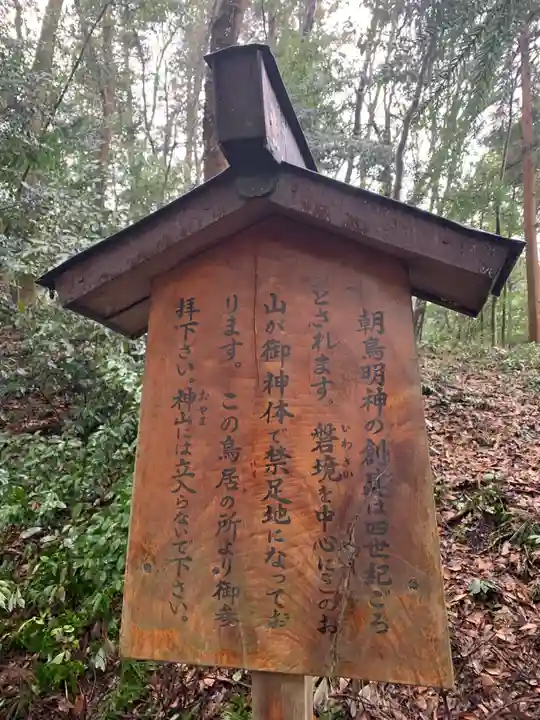 朝鳥明神の創祀は四世紀ごろ
とされます。磐境を中心にこのお
山が御神体で禁足地になってお
ります。この鳥居の所より御参
拝下さい。神山には立入らないで下さい。
いわさか
おやま